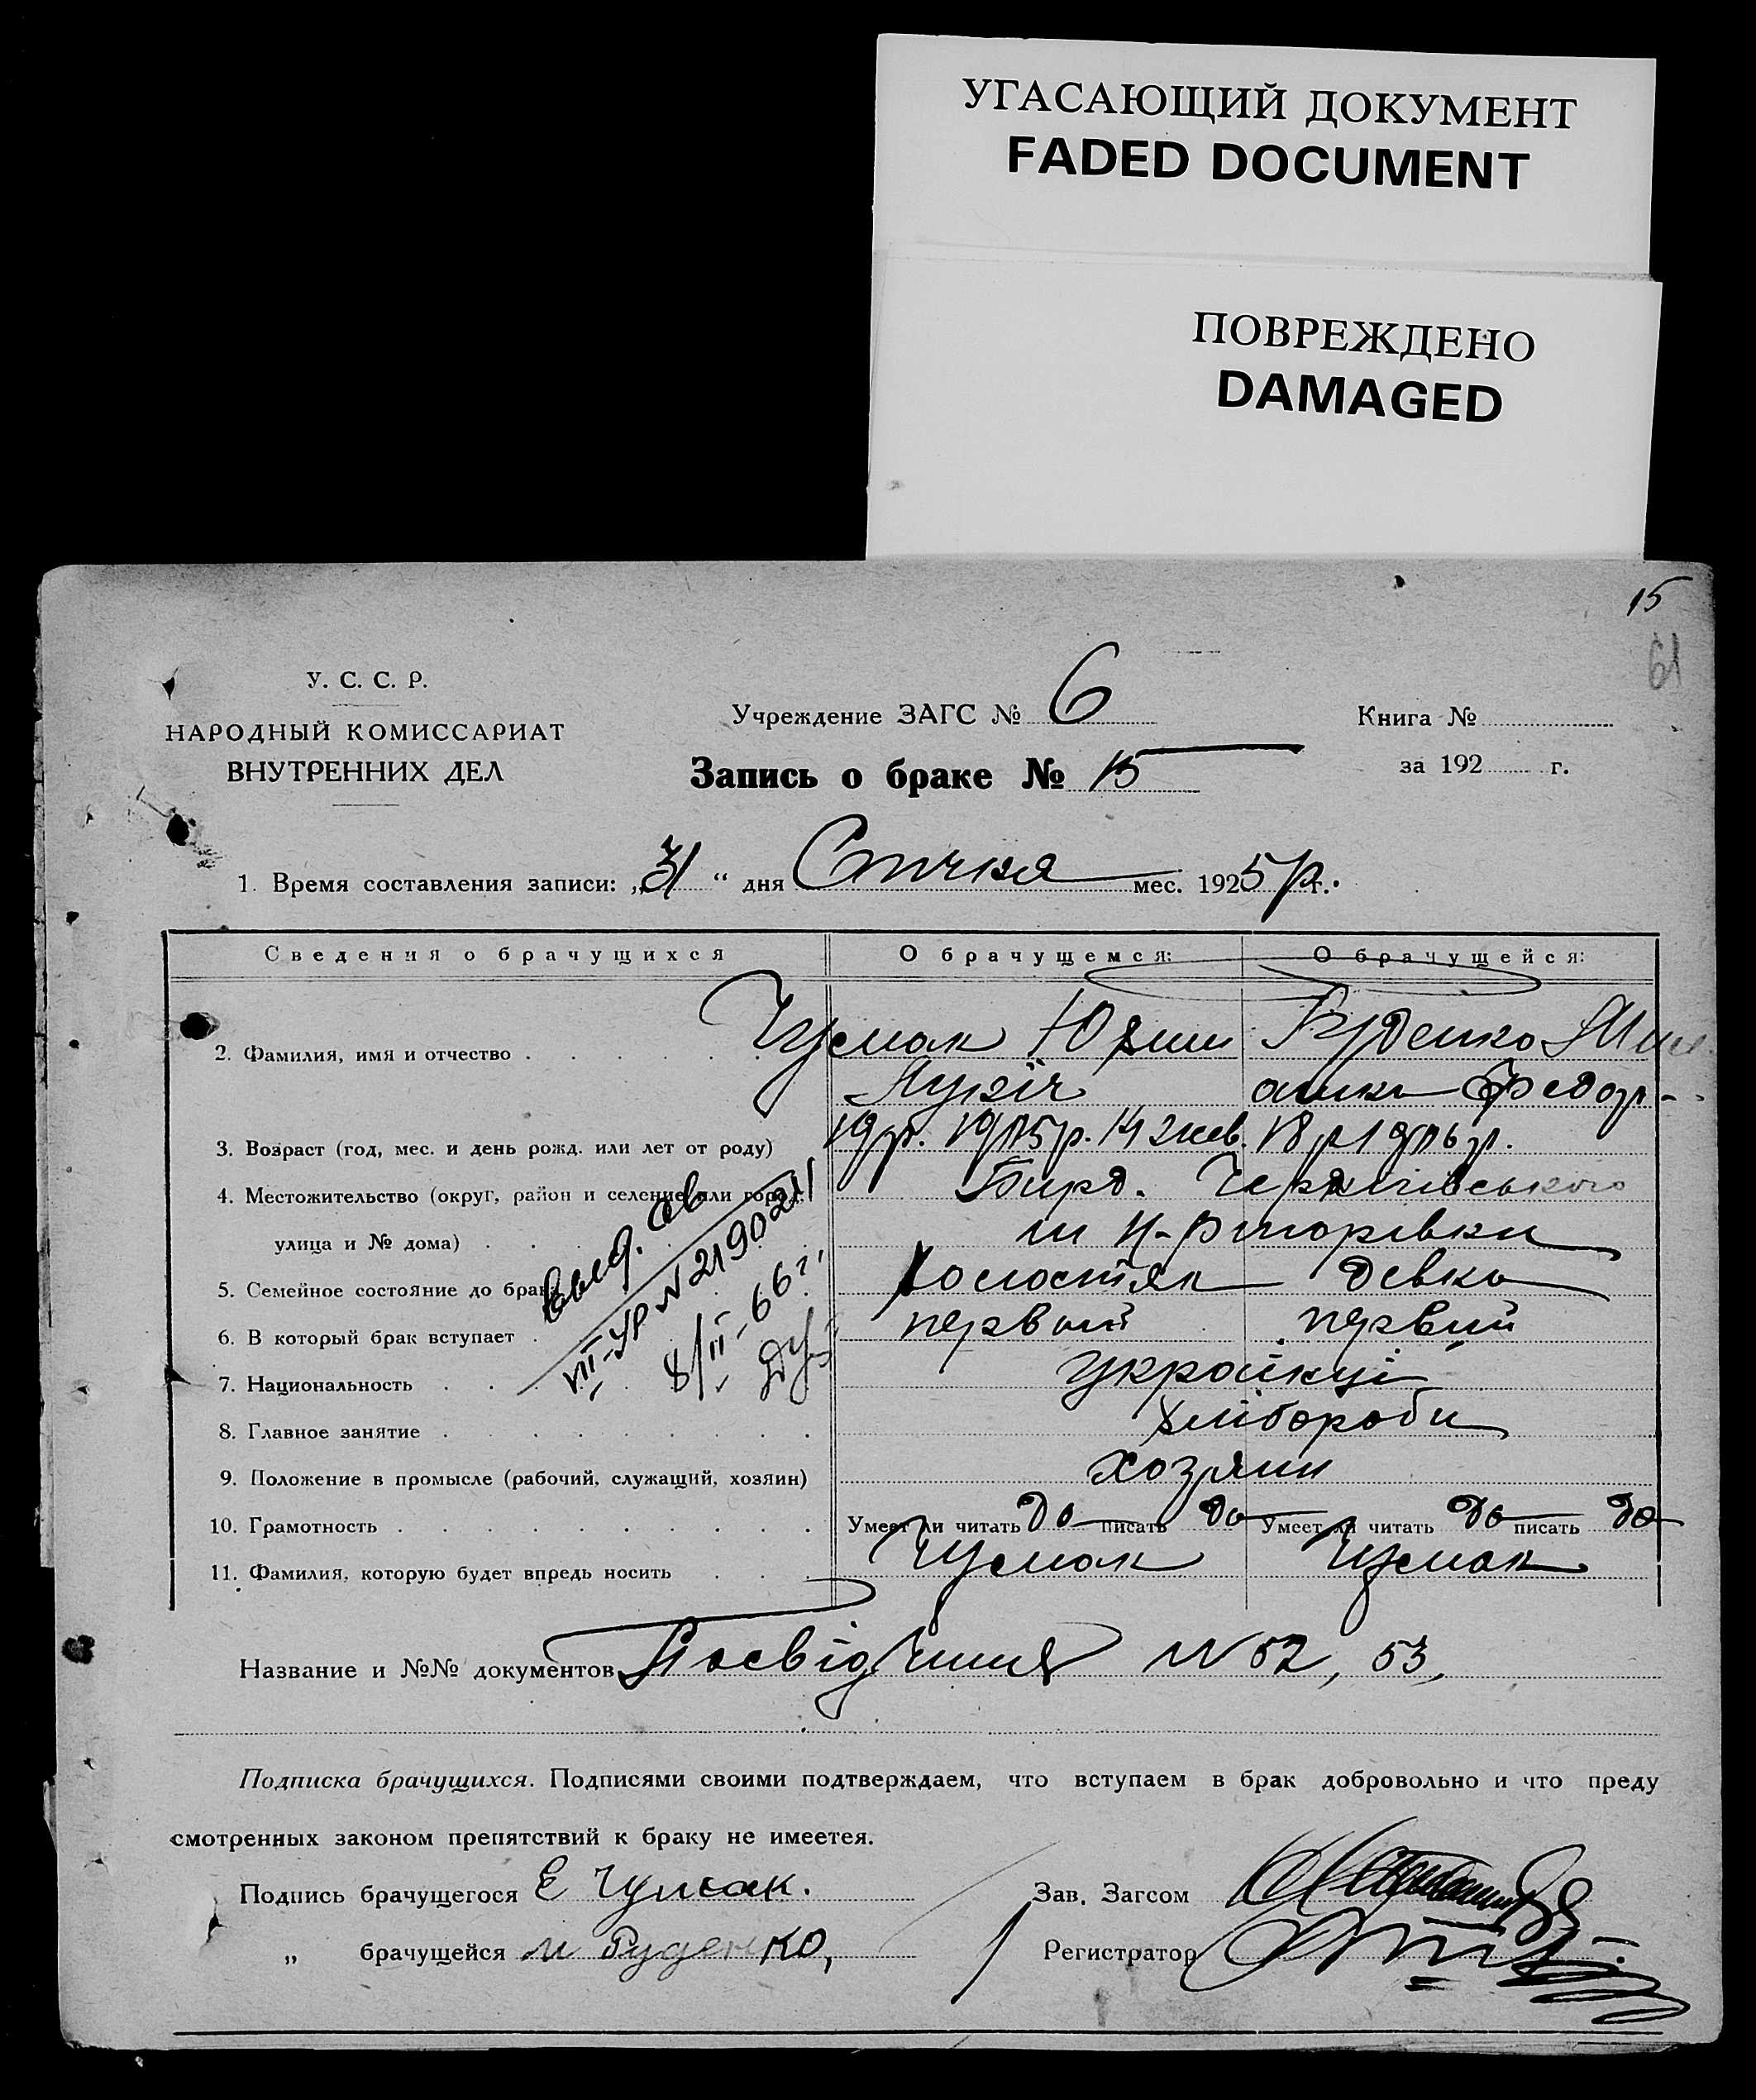 УГАСАЮЩИЙ ДОКУМЕНТ
FADED DOCUMENT
ПОВРЕЖДЕНО
DAMAGED
15
61
У. С. С. Р.
НАРОДНЫЙ КОМИССАРИАТ
ВНУТРЕННИХ ДЕЛ
Учреждение ЗАГС № 6
Книга №
Запись о браке № 15
за 192 г.
1. Время составления записи: „31 “ дня Січня мес. 1925 р г.
Сведения о брачущихся О брачущемся: О брачущейся:
2. Фамилия, имя и отчество Чумак Юхим Руденко
Федор-
3. Возраст (год, мес. и день рожд. или лет от роду) 19 р. 18 р
4. Местожительство (округ, район и селение или город, Бирд. Чернігівського
улица и № дома)
5. Семейное состояние до брака Холостяк девка
6. В который брак вступает первый первий
7. Национальность Українці
8. Главное занятие хлібороби
9. Положение в промысле (рабочий, служащий, хозяин) хозяин
10. Грамотность Умеет ли читать да писать да Умеет ли читать да писать да
11. Фамилия, которую будет впредь носить Чумак Чумак
Выд. св
VIII-УР № 219021
8/II-66 г.
Название и №№ документов Посвідчиння № 52, 53,
Подписка брачущихся. Подписями своими подтверждаем, что вступаем в брак добровольно и что преду
смотренных законом препятствий к браку не имеетея.
Подпись брачущегося Е Чумак. Зав. Загсом
„ брачущейся М Руденко, Регистратор